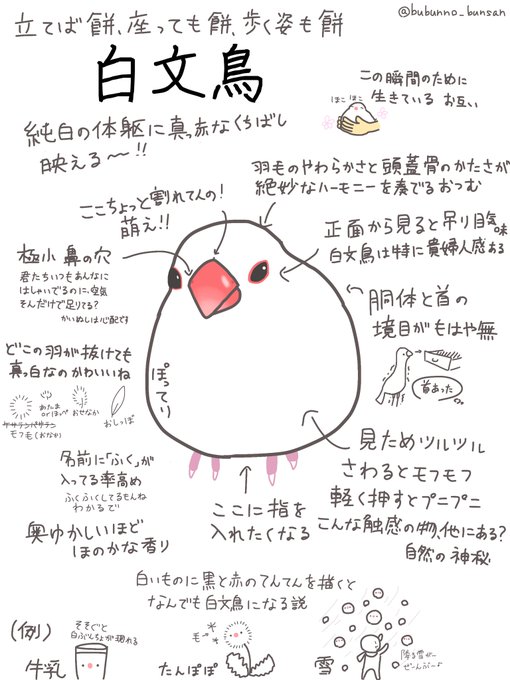 @bubunno_bunsan
立てば餅、座っても餅、歩く姿も餅
白文鳥
純白の体躯に真っ赤なくちばし
映える〜!!
この瞬間のために
生きている お互い
ほこ ほこ
羽毛のやわらかさと頭蓋骨のかたさが
絶妙なハーモニーを奏でるおつむ
ここちょっと割れてんの!
萌え!!
正面から見ると吊り目気味
白文鳥は特に貴婦人感ある
極小 鼻の穴
君たちいつもあんなに
はしゃいでるのに、空気
そんだけで足りてる?
かいぬしは心配です
胴体と首の
境目がもはや無
首あった
どこの羽が抜けても
真っ白なのかわいいね
あたま
orほっぺ
おせなか
おしっぽ
モフ毛(おなか)
ぽってり
名前に「ふく」が
入ってる率高め
ふくふくしてるもんね
わかるで
奥ゆかしいほど
ほのかな香り
ここに指を
入れたくなる
見ためツルツル
さわるとモフモフ
軽く押すとプニプニ
こんな触感の物、他にある?
自然の神秘
白いものに黒と赤のてんてんを描くと
なんでも白文鳥になる説
(例)
そそぐと
白ぶんちょが現れる
牛乳
モー
たんぽぽ
雪
降る雪が
ぜーんぶ